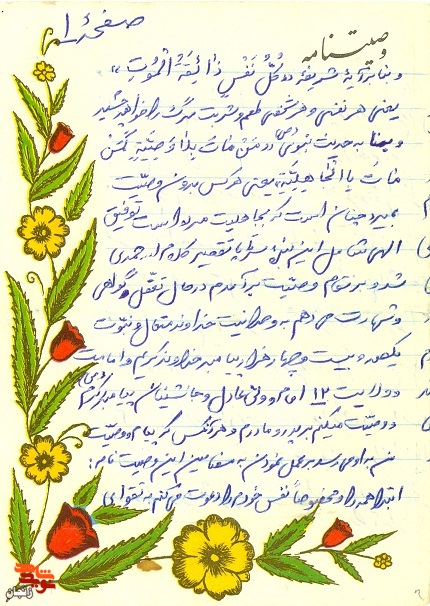 صفحهٔ ۱
وصیتنامه
و بنا بر آیهٔ شریفه «کُلُّ نَفْسٍ ذٰائِقَةُ الْمَوْتِ»
یعنی هر نفسی و هر شخصی طعم و شربت مرگ را خواهد چشید
و بنا به حدیث نبوی (ص) «مَنْ مٰاتَ بِلٰا وَصِيَّةٍ كَمَنْ
مٰاتَ بالجٰاهِلِيَّةِ» یعنی هر کس بدون وصیت
بمیرد چنان است که بجاهلیت مرده است توفیق
الهی شامل این بنده سراپا تقصیر
شد و بر نوشتن وصیت برآمدم در حال تعقل و گواهی
و شهادت میدهم به وحدانیت خداوند متعال و نبوت
یکصد و بیست و چهار هزار پیامبر خداوند کریم و امامت
و ولایت ۱۲ امام و ولی عادل و جانشینان پیامبر اکرم (ص)
و وصیت میکنم بر پدر و مادرم و هر آنکس که پیام و وصیت
من به او می رسد بر عمل نمودن به مضامین این وصیت نامه:
ابتدا همه را و مخصوصاً نفس خودم را دعوت می کنم به تقوای